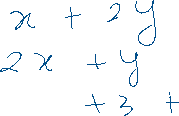 x + 2y
2x + y
+ 3 +